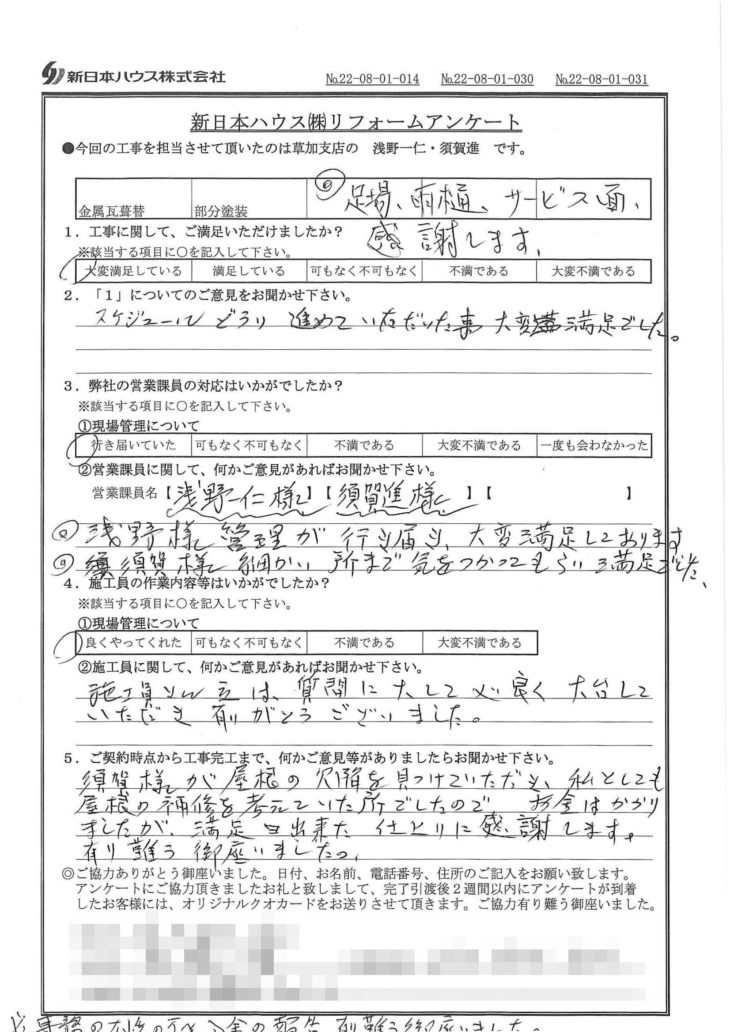 新日本ハウス株式会社
№22-08-01-014 №22-08-01-030 №22-08-01-031
新日本ハウス㈱リフォームアンケート
●今回の工事を担当させて頂いたのは草加支店の 浅野一仁・須賀進 です。
金属瓦葺替 部分塗装 足場、雨樋、サービス面、
感謝します、
1．工事に関して、ご満足いただけましたか？
※該当する項目に○を記入して下さい。
大変満足している 満足している 可もなく不可もなく 不満である 大変不満である
2．「1」についてのご意見をお聞かせ下さい。
スケジュールどうり進めていただいた事大変満足でした。
3．弊社の営業課員の対応はいかがでしたか？
※該当する項目に○を記入して下さい。
①現場管理について
行き届いていた 可もなく不可もなく 不満である 大変不満である 一度も会わなかった
②営業課員に関して、何かご意見があればお聞かせ下さい。
営業課員名【浅野一仁様】【須賀進様】【 】
浅野様 管理が行き届き、大変満足しております
須賀様 細かい所まで気をつかってもらい満足でした、
4．施工員の作業内容等はいかがでしたか？
※該当する項目に○を記入して下さい。
①現場管理について
良くやってくれた 可もなく不可もなく 不満である 大変不満である
②施工員に関して、何かご意見があればお聞かせ下さい。
施工員さん は、質問に大して 良く 大台して
いただき有がとうございました。
5．ご契約時点から工事完工まで、何かご意見等がありましたらお聞かせ下さい。
須賀様が屋根の欠陥を見つけていただき、私としても
屋根の補修を考えていた所でしたので お金はかかり
ましたが、満足 出来た 仕上りに感謝します。
有り難う御座いました。
◎ご協力ありがとう御座いました。日付、お名前、電話番号、住所のご記入をお願い致します。
アンケートにご協力頂きましたお礼と致しまして、完了引渡後2週間以内にアンケートが到着
したお客様には、オリジナルクオカードをお送りさせて頂きます。ご協力有り難う御座いました。
の報告 有難う御座いました。